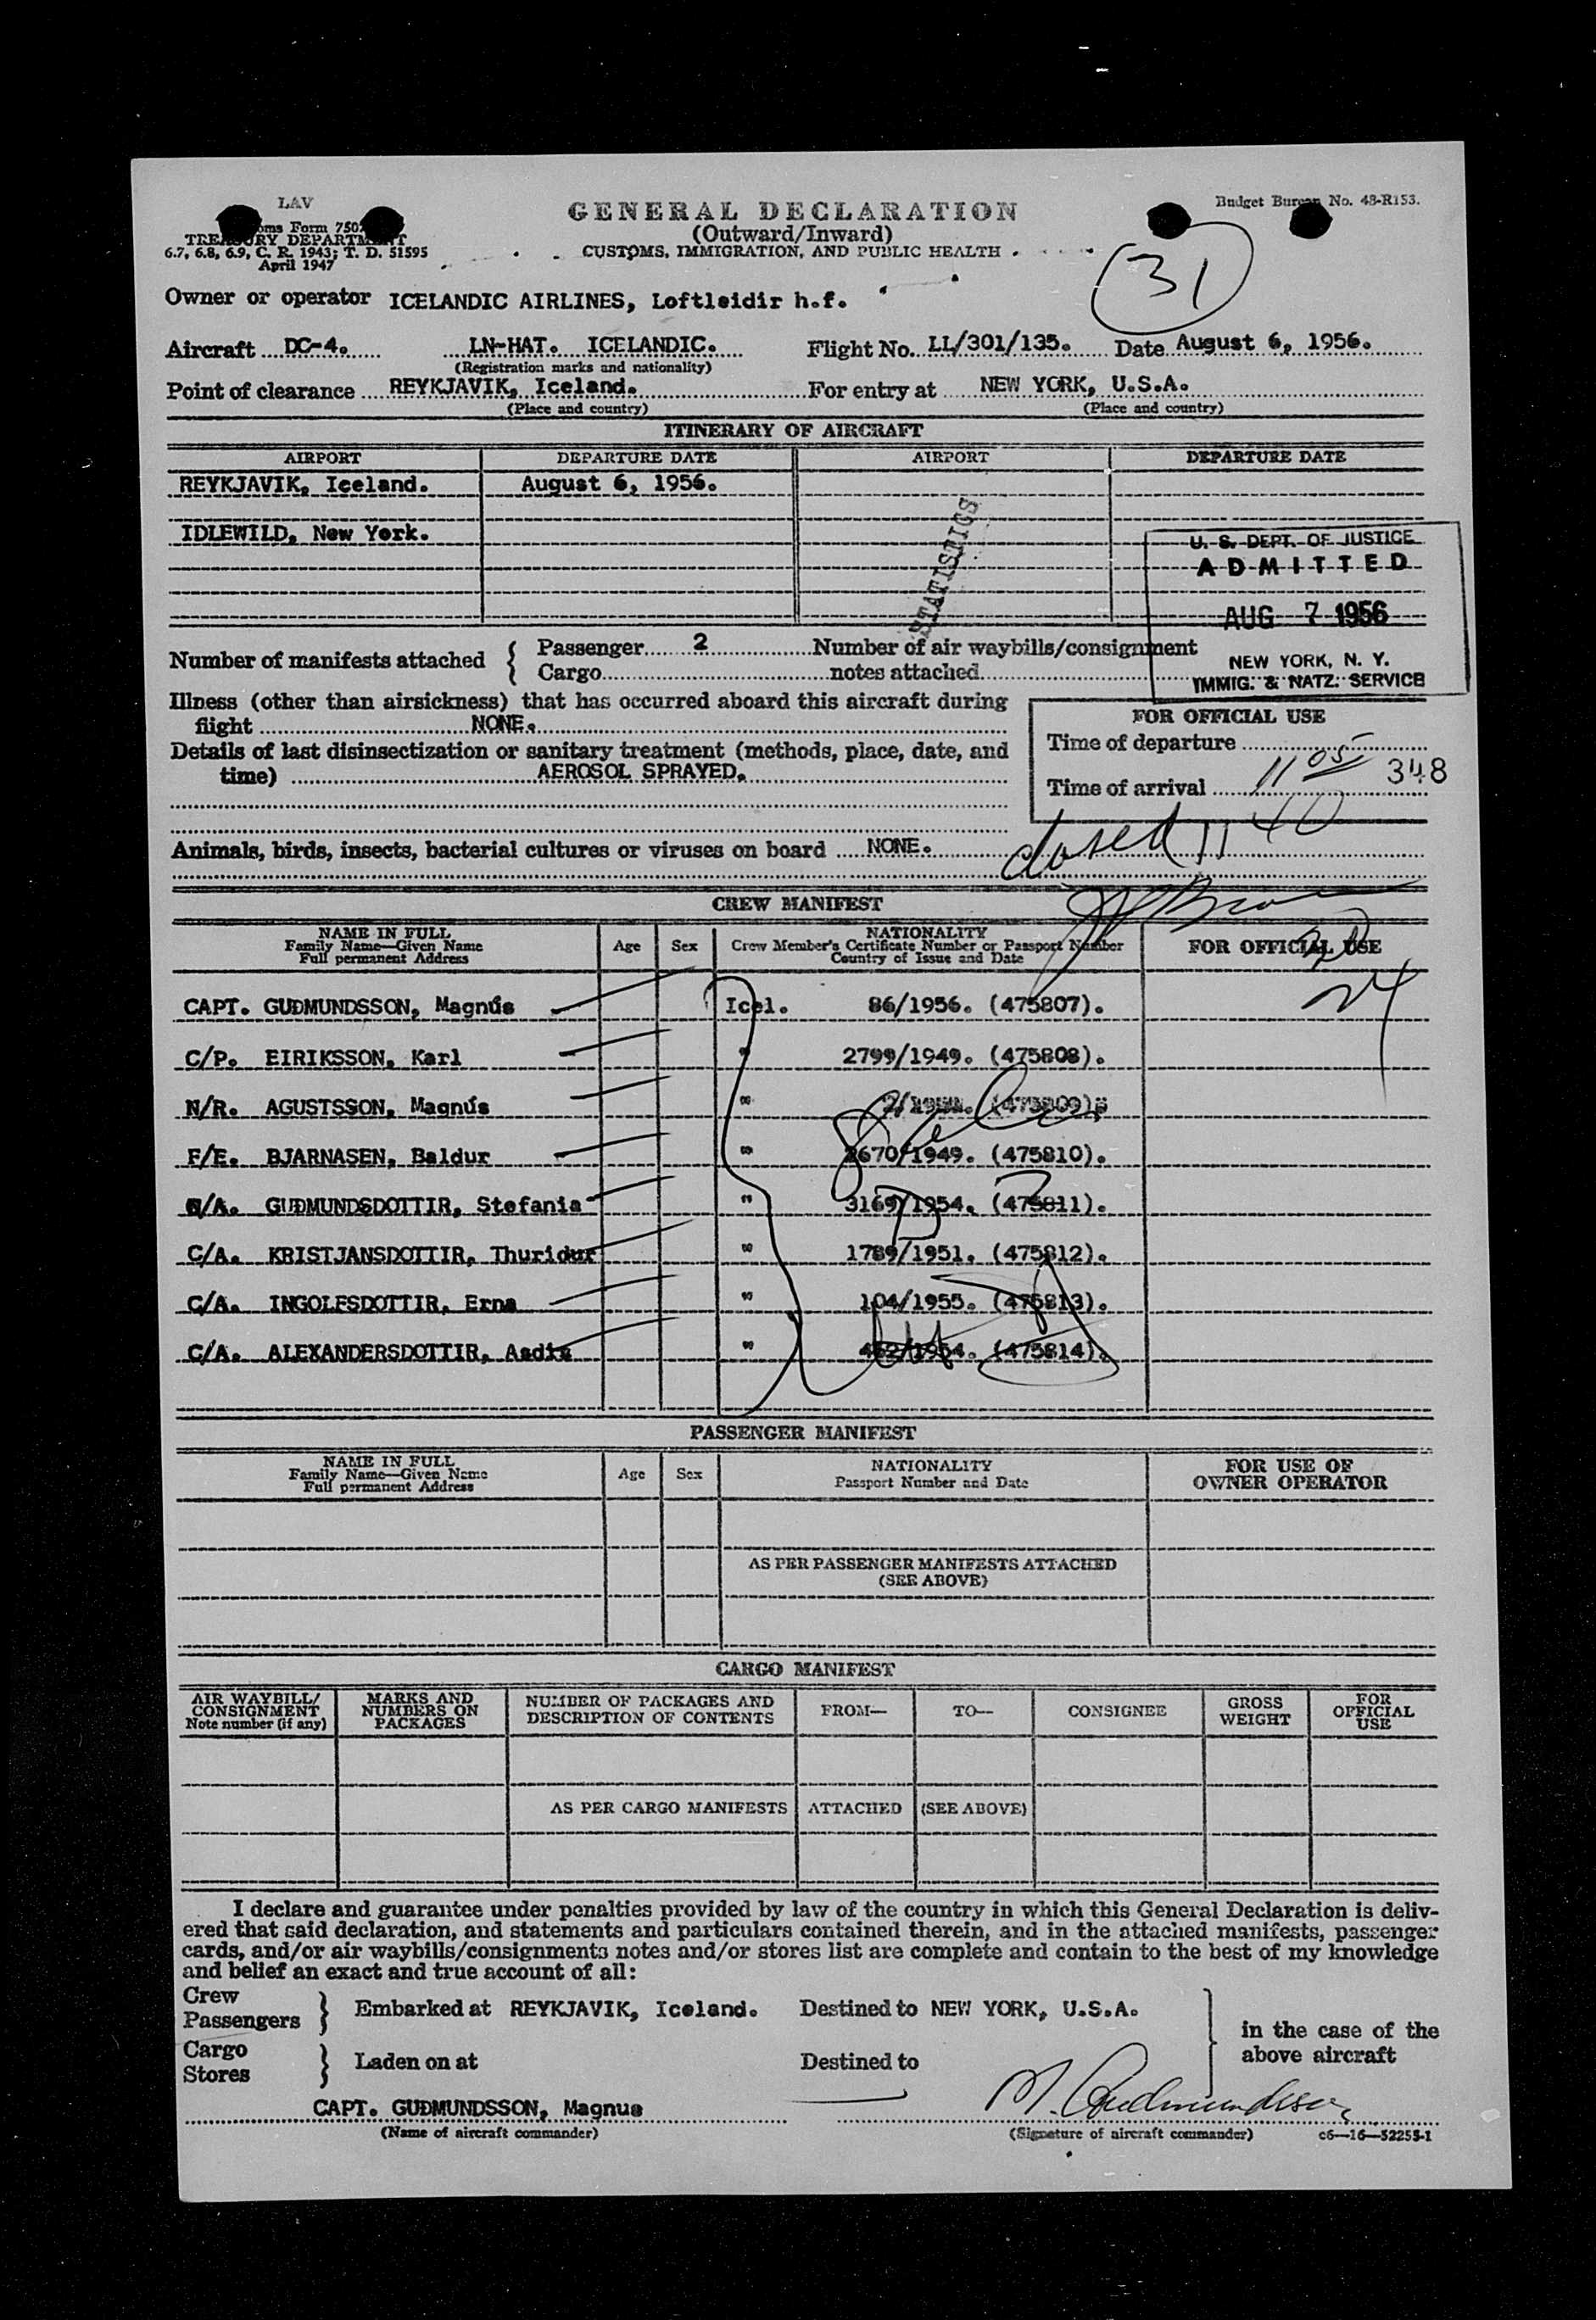 LAV
Budget Bureau No. 48-R153.
GENERAL DECLARATION
(Outward/Inward)
CUSTOMS, IMMIGRATION, AND PUBLIC HEALTH
oms Form 750
TREASURY DEPARTMENT
6.7, 6.8, 6.9, C. R. 1943; T. D. 51595
April 1947
31
Owner or operator ICELANDIC AIRLINES, Loftleidir h.f.
Aircraft DC-4. LN-HAT. ICELANDIC. Flight No. LL/301/135. Date August 6, 1956.
(Registration marks and nationality)
Point of clearance REYKJAVIK, Iceland. For entry at NEW YORK, U.S.A.
(Place and country) (Place and country)
ITINERARY OF AIRCRAFT
AIRPORT DEPARTURE DATE AIRPORT DEPARTURE DATE
REYKJAVIK, Iceland. August 6, 1956.
IDLEWILD, New York.
STATISTICS
U. S. DEPT. OF JUSTICE
ADMITTED
AUG 7 1956
NEW YORK, N. Y.
IMMIG. & NATZ. SERVICE
Number of manifests attached { Passenger 2 Number of air waybills/consignment
Cargo notes attached
Illness (other than airsickness) that has occurred aboard this aircraft during
flight NONE.
Details of last disinsectization or sanitary treatment (methods, place, date, and
time) AEROSOL SPRAYED.
FOR OFFICIAL USE
Time of departure
Time of arrival 11 05 348
closed 11 40
Animals, birds, insects, bacterial cultures or viruses on board NONE.
CREW MANIFEST
NAME IN FULL
Family Name—Given Name
Full permanent Address
Age Sex
NATIONALITY
Crew Member's Certificate Number or Passport Number
Country of Issue and Date
FOR OFFICIAL USE
CAPT. GUÐMUNDSSON, Magnús Icel. 86/1956. (475807).
C/P. EIRIKSSON, Karl " 2799/1949. (475808).
N/R. AGUSTSSON, Magnús "
F/E. BJARNASEN, Baldur " 2670/1949. (475810).
C/A. GUÐMUNDSDOTTIR, Stefania " 3169/1954. (475811).
C/A. KRISTJANSDOTTIR, Thuridur " 1789/1951. (475812).
C/A. INGOLFSDOTTIR, Erna " 104/1955. (475813).
C/A. ALEXANDERSDOTTIR, Asdis " (475814).
PASSENGER MANIFEST
NAME IN FULL
Family Name—Given Name
Full permanent Address
Age Sex
NATIONALITY
Passport Number and Date
FOR USE OF
OWNER OPERATOR
AS PER PASSENGER MANIFESTS ATTACHED
(SEE ABOVE)
CARGO MANIFEST
AIR WAYBILL/
CONSIGNMENT
Note number (if any)
MARKS AND
NUMBERS ON
PACKAGES
NUMBER OF PACKAGES AND
DESCRIPTION OF CONTENTS
FROM— TO— CONSIGNEE
GROSS
WEIGHT
FOR
OFFICIAL
USE
AS PER CARGO MANIFESTS ATTACHED (SEE ABOVE)
I declare and guarantee under penalties provided by law of the country in which this General Declaration is deliv-
ered that said declaration, and statements and particulars contained therein, and in the attached manifests, passenger
cards, and/or air waybills/consignments notes and/or stores list are complete and contain to the best of my knowledge
and belief an exact and true account of all:
Crew
Passengers } Embarked at REYKJAVIK, Iceland. Destined to NEW YORK, U.S.A.
Cargo
Stores } Laden on at Destined to
in the case of the
above aircraft
CAPT. GUÐMUNDSSON, Magnus M. Gudmundsson
(Name of aircraft commander) (Signature of aircraft commander) c6—16—52255-1